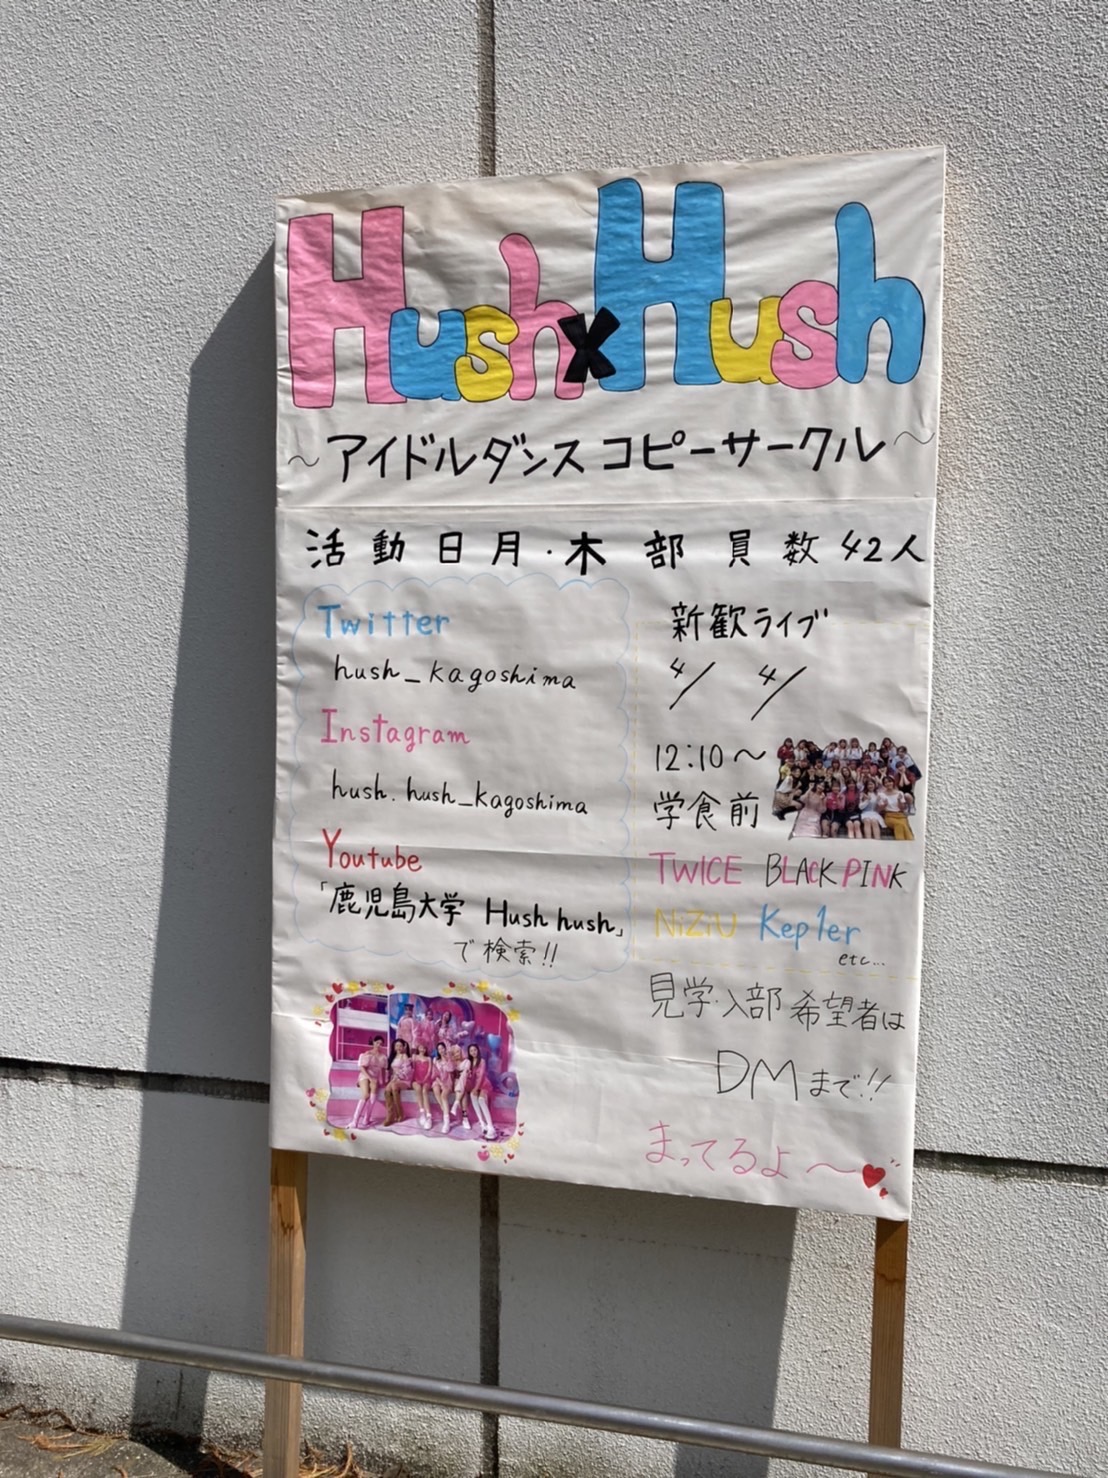 Hush×Hush
~アイドルダンスコピーサークル~
活動日月・木 部員数42人
Twitter
hush_kagoshima
Instagram
hush.hush_kagoshima
Youtube
「鹿児島大学 Hush hush」
で検索!!
新歓ライブ
4/ 4/
12:10~
学食前
TWICE BLACKPINK
NiZiU Kep1er
etc...
見学・入部希望者は
DMまで!!
まってるよ~